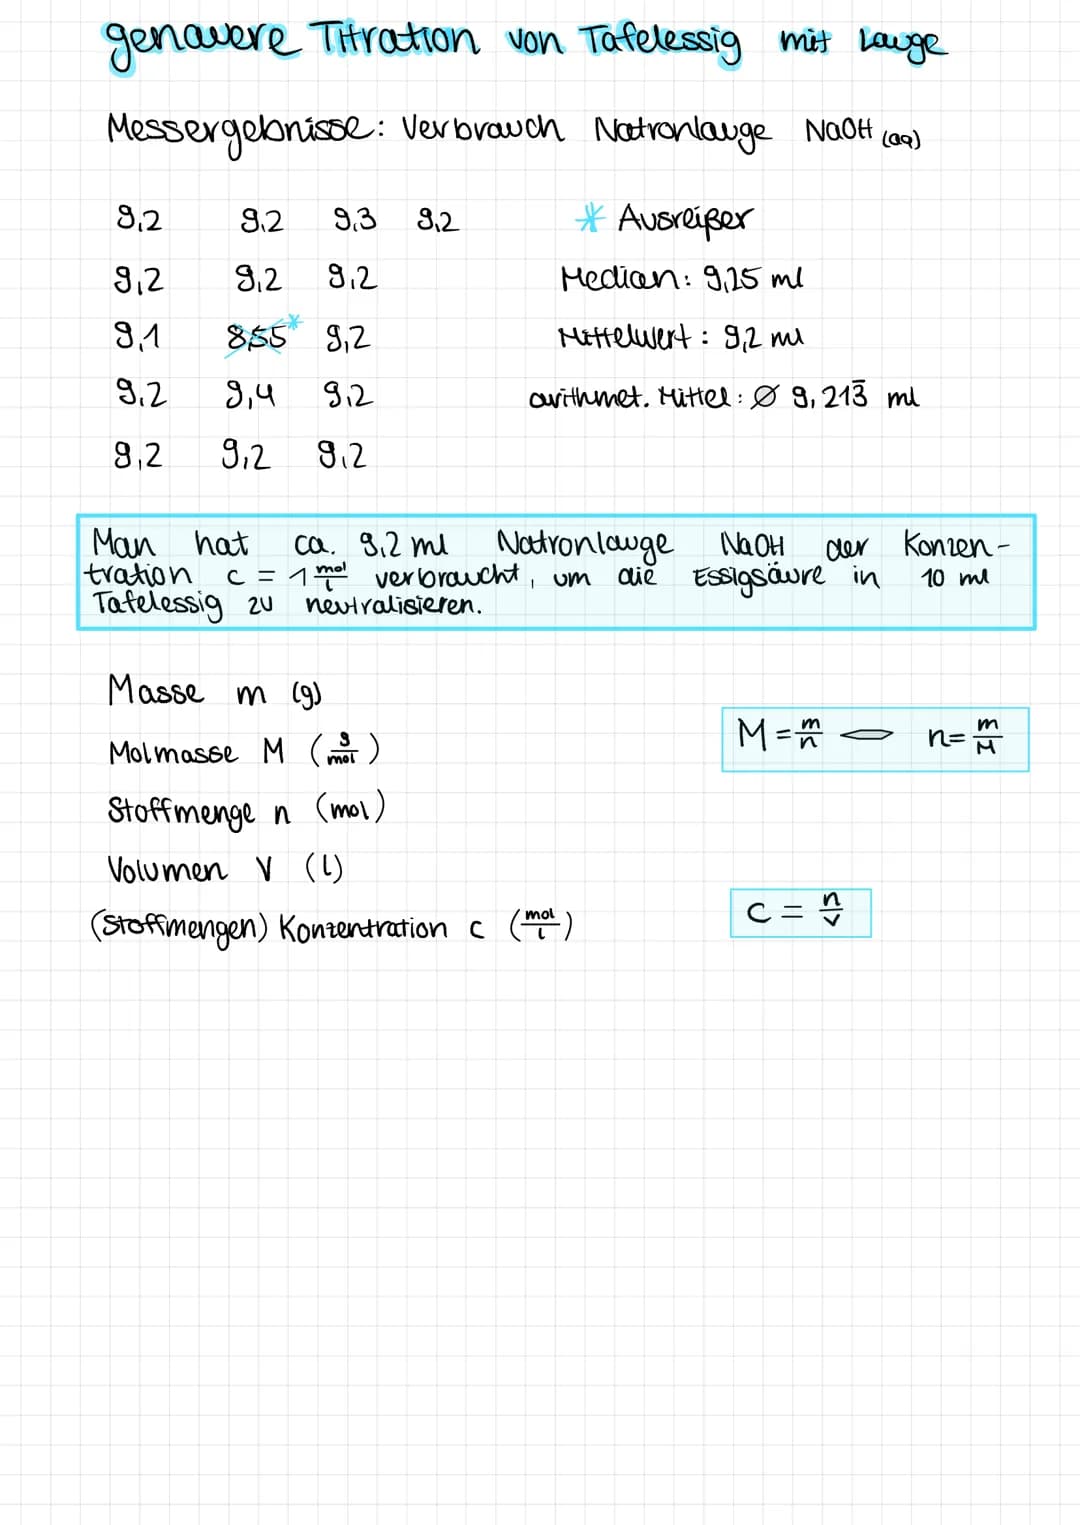 genauere Titration von Tafelessig mit Lauge
Messergebnisse: Verbrauch Natronlauge NaOH (aq)
9,2 9,2 9,3 9,2 * Ausreißer
9,2 9,2 9,2 Median: 9,15 ml
9,1 8,55* 9,2 Mittelwert: 9,2 ml
9,2 9,4 9,2 arithmet. Mittel: ∅ 9,213̅ ml
9,2 9,2 9,2
Man hat ca. 9,2 ml Natronlauge NaOH der Konzen-
tration c = 1 mol/l verbraucht, um die Essigsäure in 10 ml
Tafelessig zu neutralisieren.
Masse m (g)
Molmasse M (g/mol) M = m/n ⇔ n = m/M
Stoffmenge n (mol)
Volumen V (l)
(Stoffmengen) Konzentration c (mol/l) c = n/V